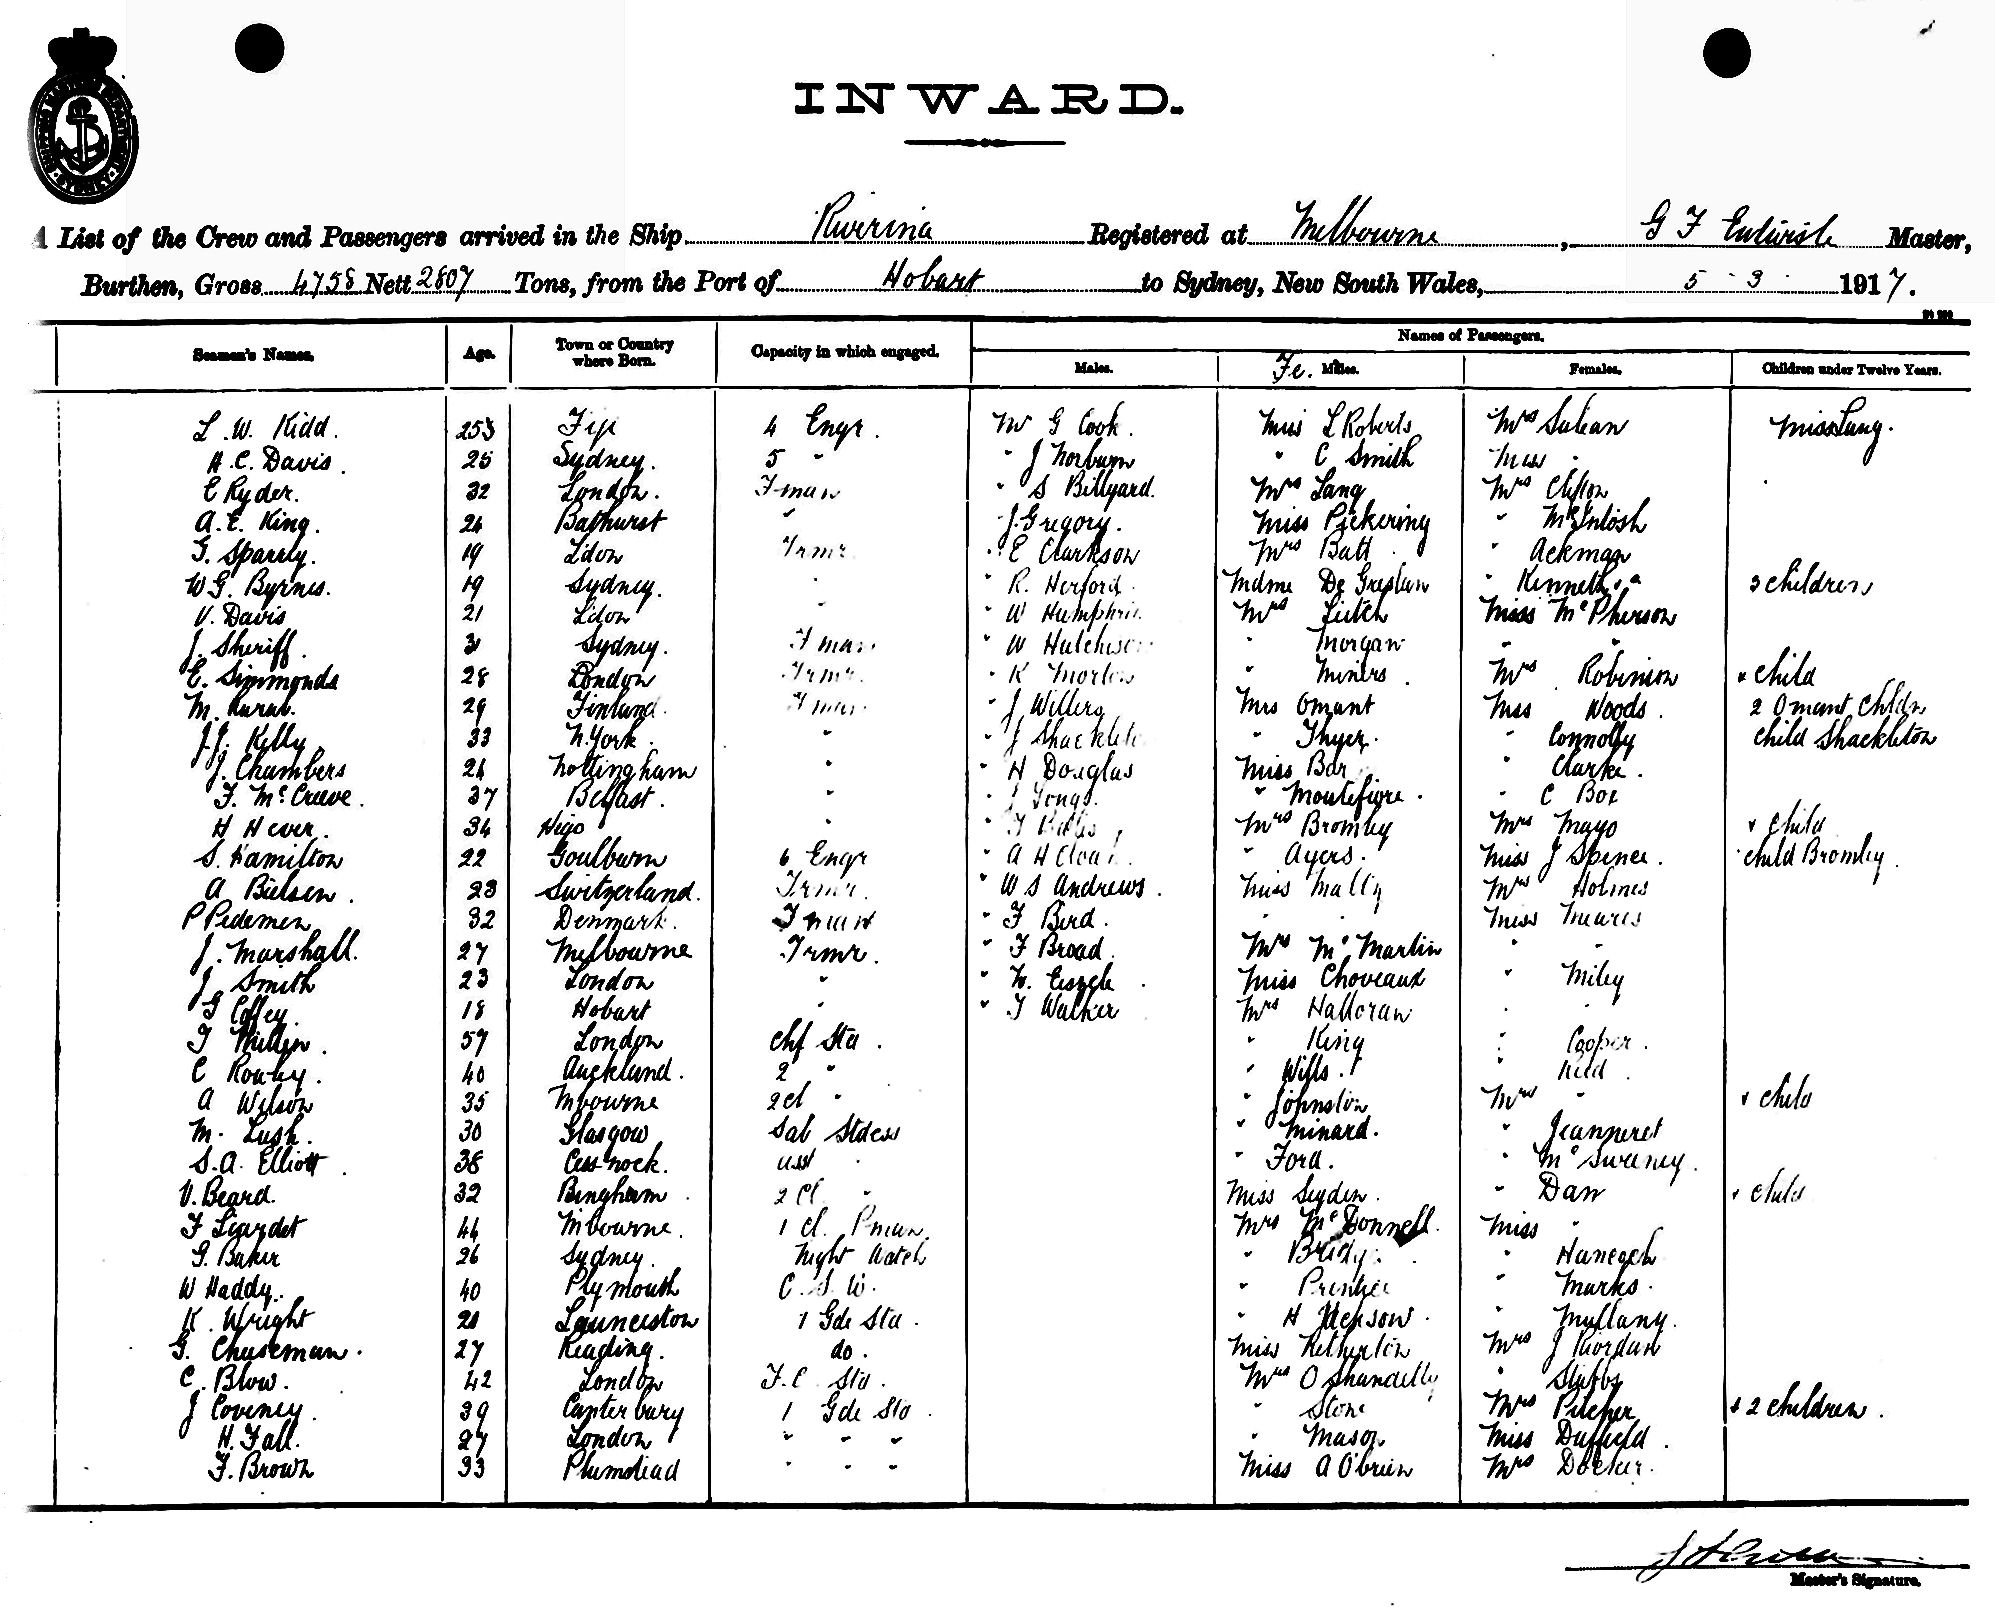 INWARD.
A List of the Crew and Passengers arrived in the Ship Riverina Registered at Melbourne, G F Entwisle Master,
Burthen, Gross 4758 Nett 2807 Tons, from the Port of Hobart to Sydney, New South Wales, 5 3 1917.
Names of Passengers.
Seamen's Names. Age. Town or Country where Born. Capacity in which engaged. Males. Fe. Males. Females. Children under Twelve Years.
L. W. Kidd. Fiji 4 Engr. Mr G Cook. Miss L Roberts Mrs Miss Lang.
H. C. Davis. 25 Sydney. 5 " " J Norburn " C Smith Miss "
E Ryder. 32 London. Fman " S Billyard. Mrs Lang Mrs Clifton
A. E. King. 24 Bathurst " J. Gregory. Miss Pickering " McIntosh
G. Sparrly. 19 Ldon Trmr " E Clarkson Mrs Batt " Ackman
W G. Byrnes. 19 Sydney. " " R. Herford. Mdme De " Kenneth 3 children
V. Davis 21 Ldon " " W Humphris Mrs Fitch Miss McPherson
J. Sheriff. Sydney. Fman " W Hutchison " Morgan " "
E. Simmonds 28 London Trmr. " K Morton " Miners. Mrs Robinson + child
M. 29 Finland Fman. " J Willers Mrs Omant Miss Woods. 2 Omant Childn
J. J. Kelly 33 N. York. " " J Shackleton " Thyer. " Connolly child Shackleton
J. Chambers 24 Nottingham " " H Douglas Miss Bar " Clarke.
F. McCreeve. 37 Belfast. " " J Songs. " Montefiore. " C Box
H Hever. 34 " " Mrs Bromley Mrs Mayo + child
S. Hamilton 22 Goulburn 6 Engr " A H Cloak. " Ayers. Miss J Spence. child Bromley.
A Bielsen. 23 Switzerland. Trmr. " W S Andrews. Miss Mally Mrs Holmes
P Pedersen 32 Denmark. Fman " F Bird. " " Miss Meares
J. Marshall. 27 Melbourne Trmr. " F Broad. Mrs McMartin " "
J Smith 23 London " " Miss Choveaux " Miley
G Coffey. 18 Hobart " " T Walker Mrs Halloran " "
T 57 London Chf Std. " King " Cooper.
C 40 Auckland. 2 " " Wills. "
A Wilson 35 Mbourne 2 Cl " " Johnston Mrs " + child
M. Lush. 30 Glasgow Sal Stdess " Minard. " Jeanneret
S. A. Elliott. 38 Cessnock. asst " " Ford. " McSweeney.
V. Beard. 32 Bingham. 2 Cl. " Miss Seyden. " Dan + child
F Liardet 44 Mbourne. 1 Cl. Pman. Mrs McDonnell. Miss "
G. Baker 26 Sydney. Night Watch " " Hancock
W Haddy. 40 Plymouth C. S. W. " Prentice " Marks.
K. Wright Launceston 1 Gde Std. " H Jackson. " Mullany.
G. Chuseman. 27 Reading. do. Miss Netherton Mrs J Riordan
C. Blow. 42 London F. C. Std. Mrs O Shandelly " Stubbs
J Coveney. 39 Canterbury 1 Gde Std. " Stone Mrs Pilcher + 2 children.
H. Fall. 27 London " " " " Mason Miss Duffield.
F. Brown 33 Plumstead " " " Miss A O'Brien Mrs Docker.
Master's Signature.